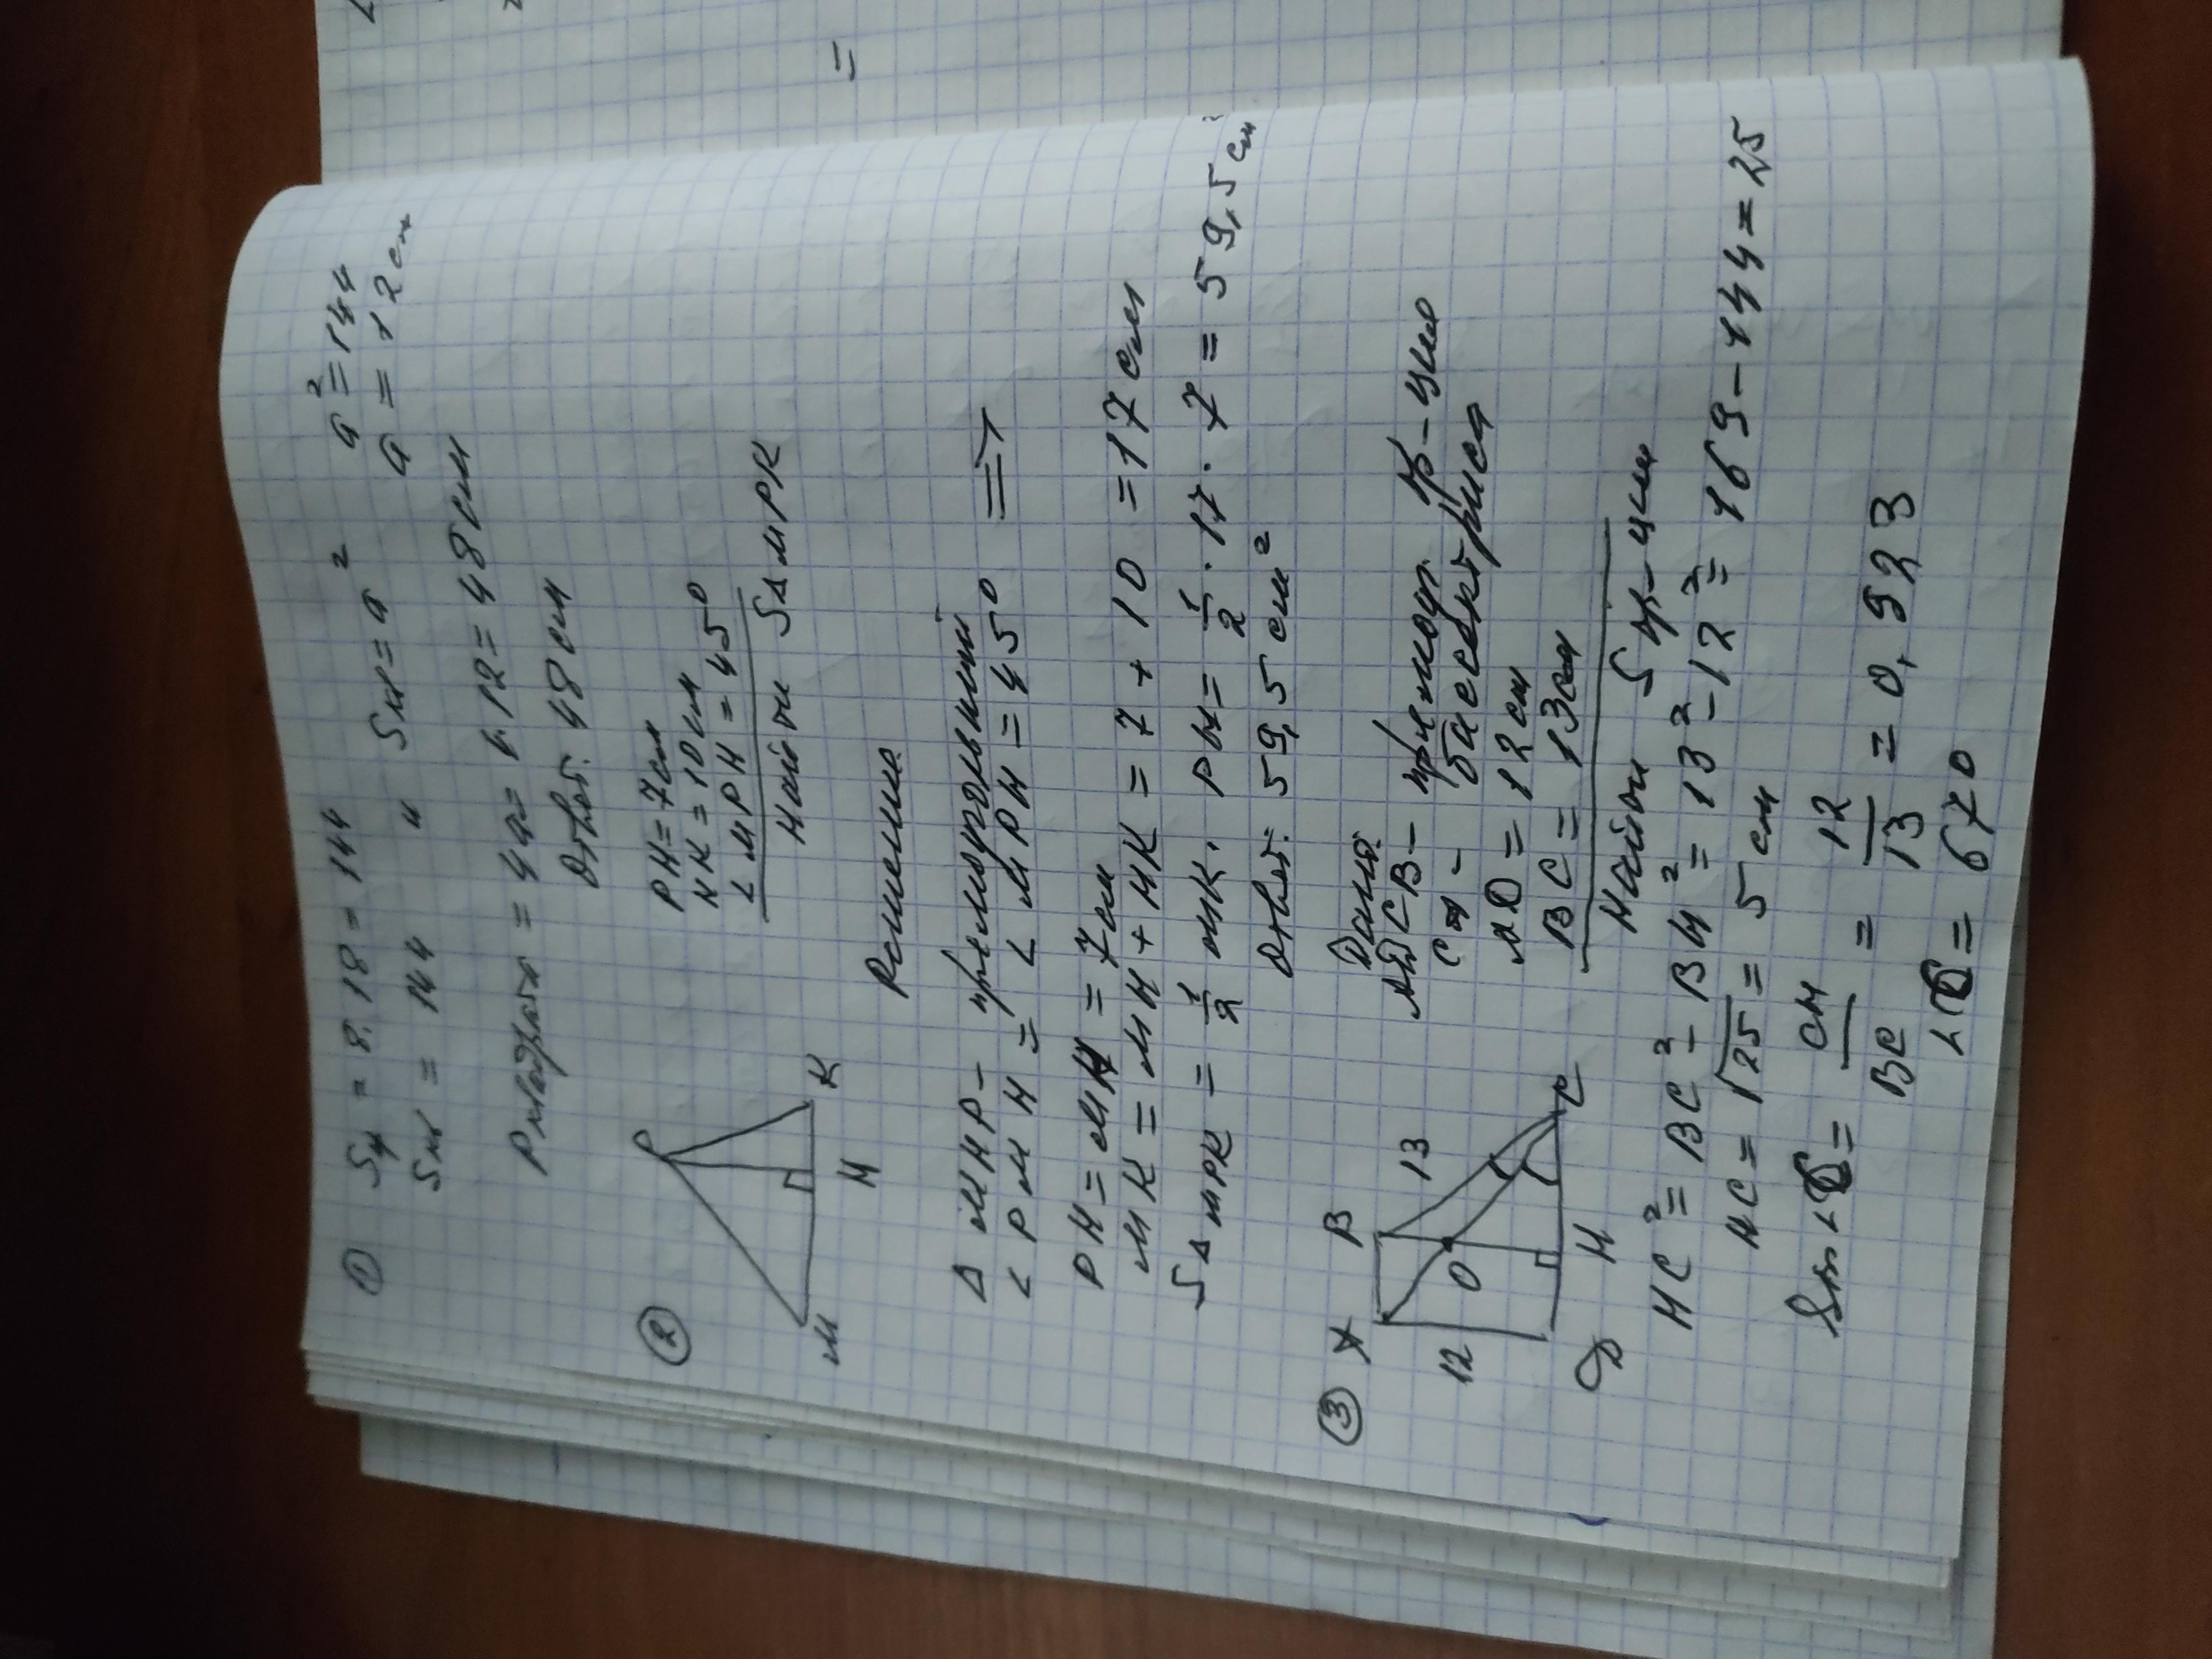 ①
Sп = 8 · 18 = 144 a² = 144
Sкв = 144 и Sкв = a² a = 12 см
Pквадрата = 4a = 4 · 12 = 48 см
Ответ: 48 см
②
P
M
H
K
PH = 7 см
HK = 10 см
∠MPH = 45°
Найти SΔMPK
Решение
Δ MHP – прямоугольный
∠PMH = ∠MPH = 45° ⇒
PH = MH = 7 см
MK = MH + HK = 7 + 10 = 17 см
SΔMPK = 1/2 MK · PH = 1/2 · 17 · 7 = 59,5 см²
Ответ: 59,5 см²
③
A
B
13
12
O
D
H
C
Дано
ADCB – прямоуг. тр-ция
CA – биссектриса
AD = 12 см
BC = 13 см
Найти S тр-ции
HC² = BC² – BH² = 13² – 12² = 169 – 144 = 25
HC = √25 = 5 см
Sin∠ = CH/BC = 12/13 = 0,923
= 67°